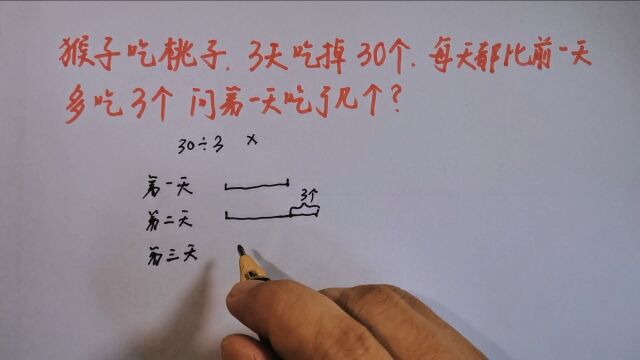 猴子吃桃子,3天吃掉30个.每天都比前一天
多吃3个 问第一天吃了几个?
30÷3 ×
第一天
3个
第二天
第三天